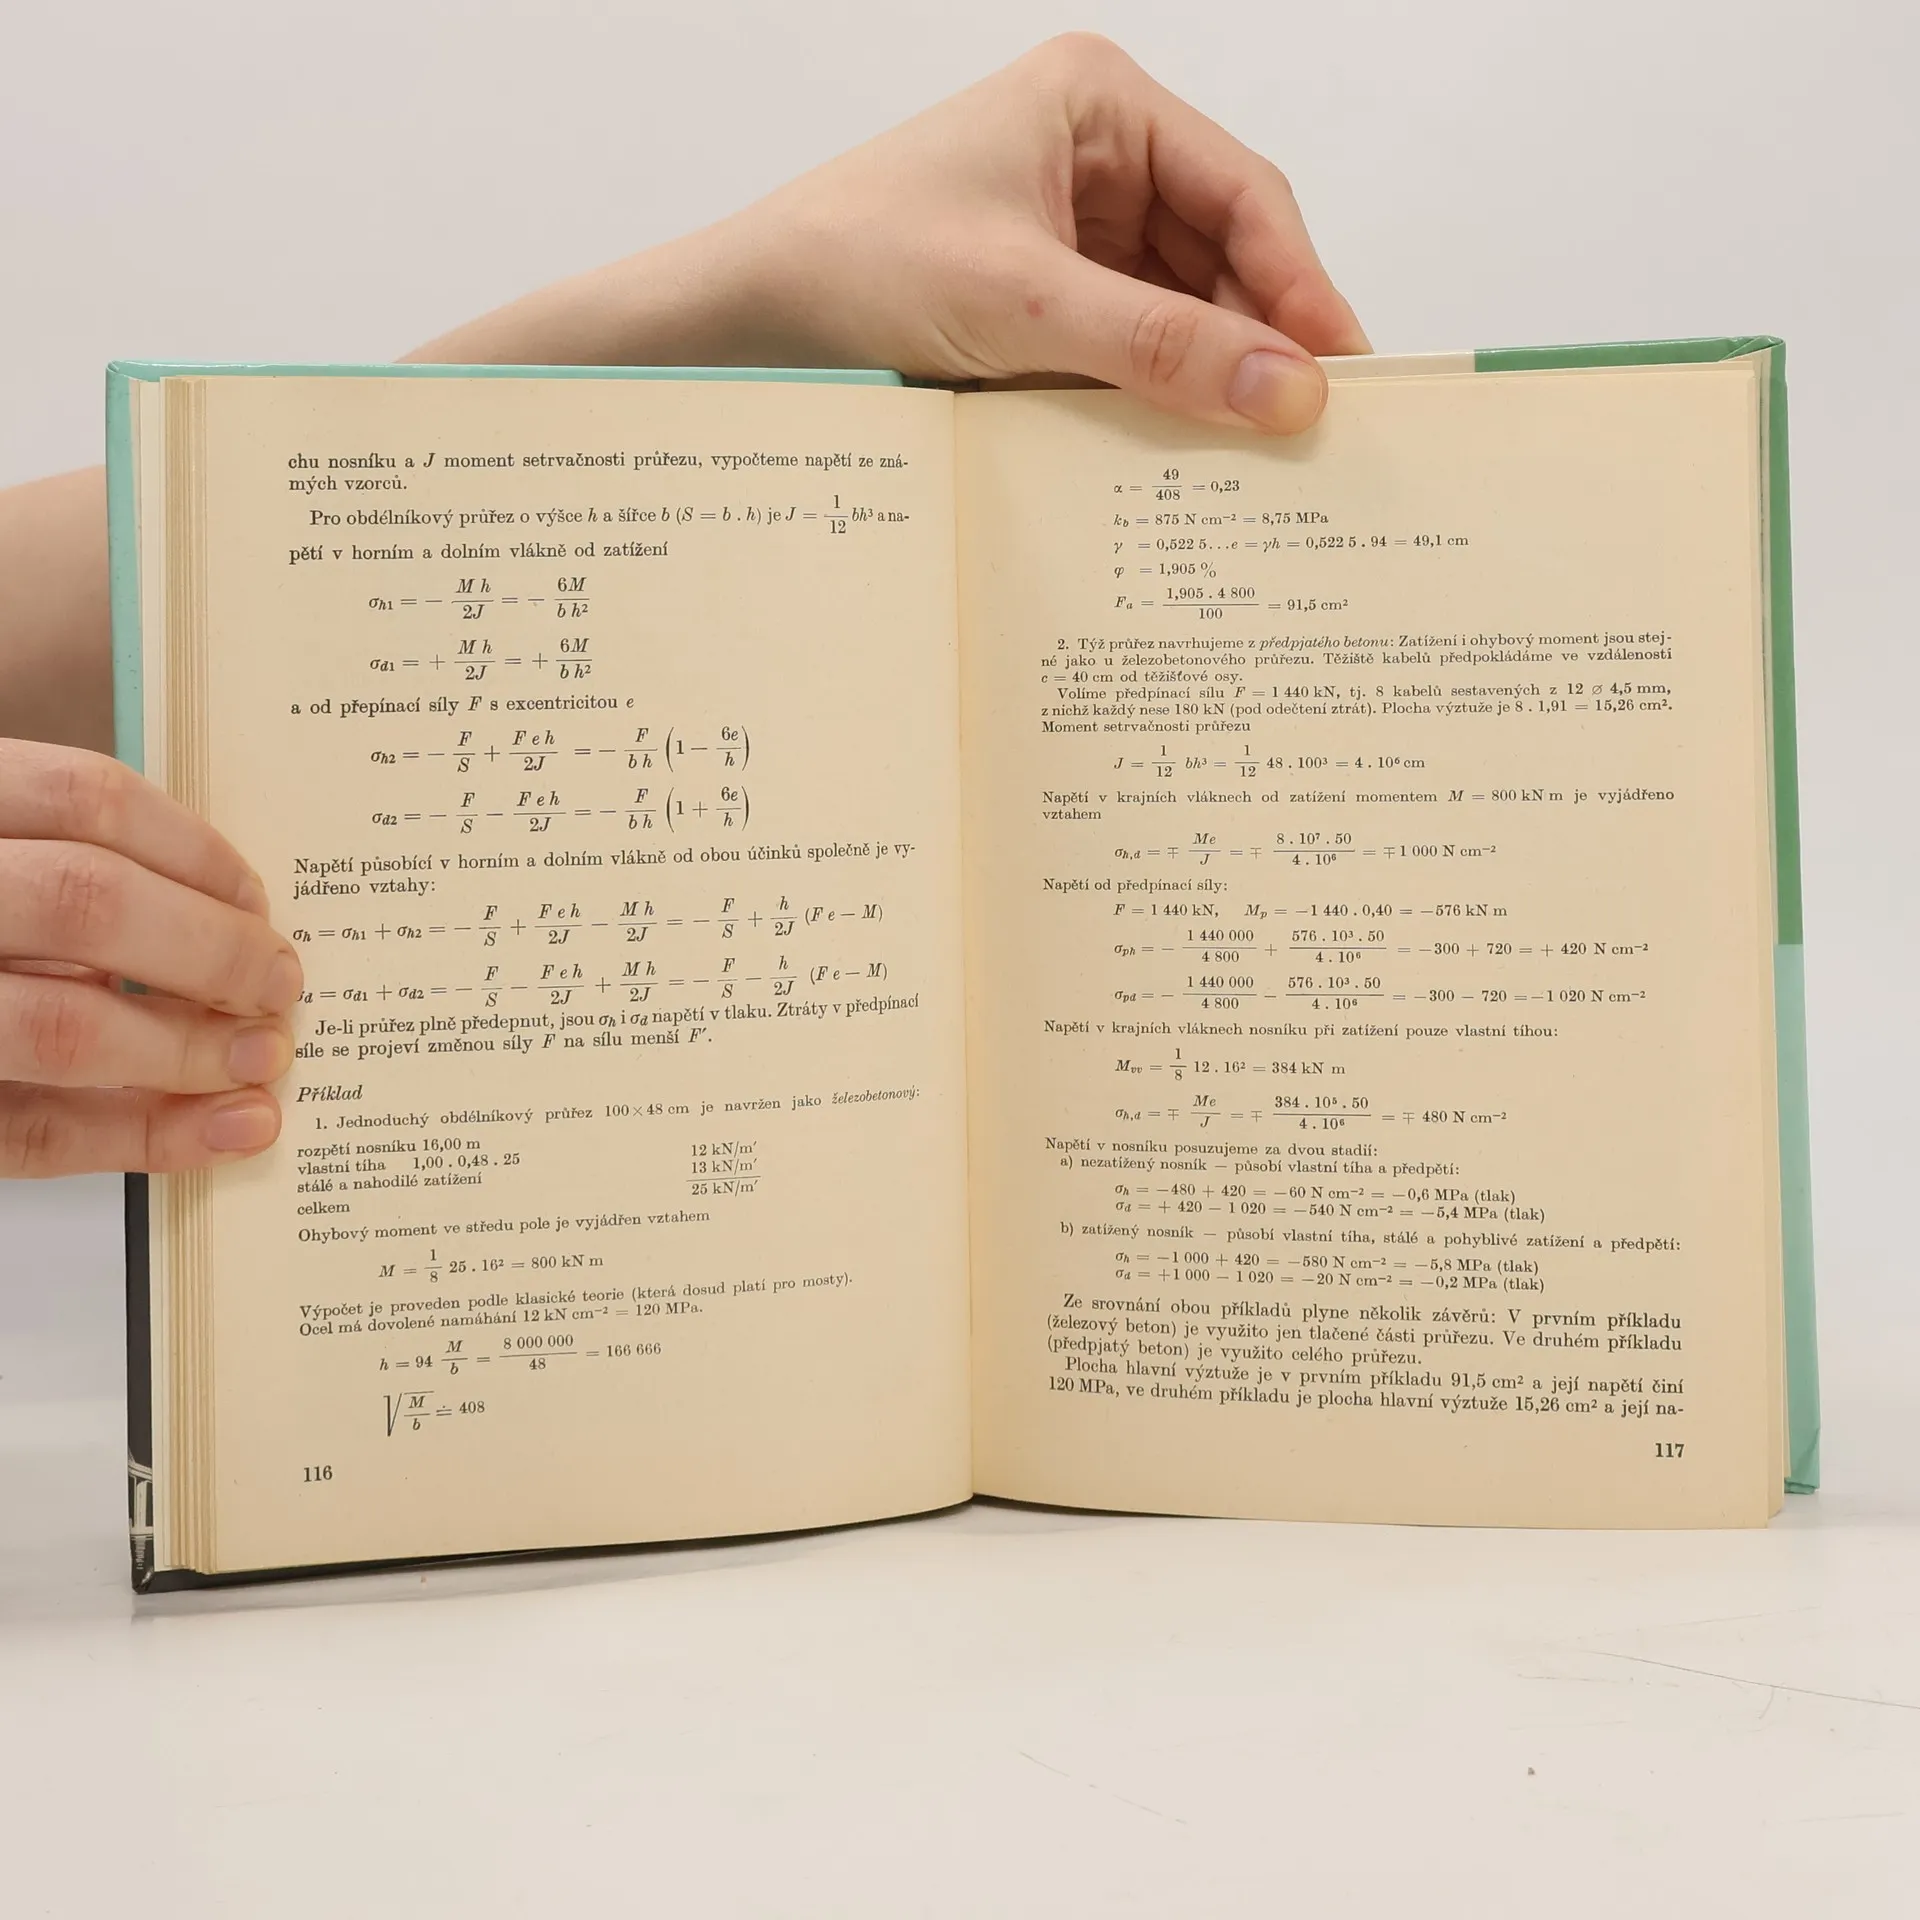 chu nosníku a J moment setrvačnosti průřezu, vypočteme napětí ze zná-
mých vzorců.
Pro obdélníkový průřez o výšce h a šířce b (S = b . h) je J = 1/12 bh³ a na-
pětí v horním a dolním vlákně od zatížení
σh1 = − M h/2J = − 6M/b h²
σd1 = + M h/2J = + 6M/b h²
a od přepínací síly F s excentricitou e
σh2 = − F/S + F e h/2J = − F/b h (1 − 6e/h)
σd2 = − F/S − F e h/2J = − F/b h (1 + 6e/h)
Napětí působící v horním a dolním vlákně od obou účinků společně je vy-
jádřeno vztahy:
σh = σh1 + σh2 = − F/S + F e h/2J − M h/2J = − F/S + h/2J (F e − M)
d = σd1 + σd2 = − F/S − F e h/2J + M h/2J = − F/S − h/2J (F e − M)
Je-li průřez plně předepnut, jsou σh i σd napětí v tlaku. Ztráty v předpínací
síle se projeví změnou síly F na sílu menší F′.
Příklad
1. Jednoduchý obdélníkový průřez 100×48 cm je navržen jako železobetonový:
rozpětí nosníku 16,00 m
vlastní tíha 1,00 . 0,48 . 25 12 kN/m′
stálé a nahodilé zatížení 13 kN/m′
celkem 25 kN/m′
Ohybový moment ve středu pole je vyjádřen vztahem
M = 1/8 25 . 16² = 800 kN m
Výpočet je proveden podle klasické teorie (která dosud platí pro mosty).
Ocel má dovolené namáhání 12 kN cm⁻² = 120 MPa.
h = 94 M/b = 8 000 000/48 = 166 666
√M/b ≐ 408
116
α = 49/408 = 0,23
kb = 875 N cm⁻² = 8,75 MPa
γ = 0,522 5...e = γh = 0,522 5 . 94 = 49,1 cm
φ = 1,905 %
Fa = 1,905 . 4 800/100 = 91,5 cm²
2. Týž průřez navrhujeme z předpjatého betonu: Zatížení i ohybový moment jsou stej-
né jako u železobetonového průřezu. Těžiště kabelů předpokládáme ve vzdálenosti
c = 40 cm od těžišťové osy.
Volíme předpínací sílu F = 1 440 kN, tj. 8 kabelů sestavených z 12 ⌀ 4,5 mm,
z nichž každý nese 180 kN (pod odečtení ztrát). Plocha výztuže je 8 . 1,91 = 15,26 cm².
Moment setrvačnosti průřezu
J = 1/12 bh³ = 1/12 48 . 100³ = 4 . 10⁶ cm
Napětí v krajních vláknech od zatížení momentem M = 800 kN m je vyjádřeno
vztahem
σh,d = ∓ Me/J = ∓ 8 . 10⁷ . 50/4 . 10⁶ = ∓ 1 000 N cm⁻²
Napětí od předpínací síly:
F = 1 440 kN, Mp = −1 440 . 0,40 = −576 kN m
σph = − 1 440 000/4 800 + 576 . 10³ . 50/4 . 10⁶ = −300 + 720 = + 420 N cm⁻²
σpd = − 1 440 000/4 800 − 576 . 10³ . 50/4 . 10⁶ = −300 − 720 = −1 020 N cm⁻²
Napětí v krajních vláknech nosníku při zatížení pouze vlastní tíhou:
Mvv = 1/8 12 . 16² = 384 kN m
σh,d = ∓ Me/J = ∓ 384 . 10⁵ . 50/4 . 10⁶ = ∓ 480 N cm⁻²
Napětí v nosníku posuzujeme za dvou stadií:
a) nezatížený nosník — působí vlastní tíha a předpětí:
σh = −480 + 420 = −60 N cm⁻² = −0,6 MPa (tlak)
σd = + 420 − 1 020 = −540 N cm⁻² = −5,4 MPa (tlak)
b) zatížený nosník — působí vlastní tíha, stálé a pohyblivé zatížení a předpětí:
σh = −1 000 + 420 = −580 N cm⁻² = −5,8 MPa (tlak)
σd = +1 000 − 1 020 = −20 N cm⁻² = −0,2 MPa (tlak)
Ze srovnání obou příkladů plyne několik závěrů: V prvním příkladu
(železový beton) je využito jen tlačené části průřezu. Ve druhém příkladu
(předpjatý beton) je využito celého průřezu.
Plocha hlavní výztuže je v prvním příkladu 91,5 cm² a její napětí činí
120 MPa, ve druhém příkladu je plocha hlavní výztuže 15,26 cm² a její na-
117